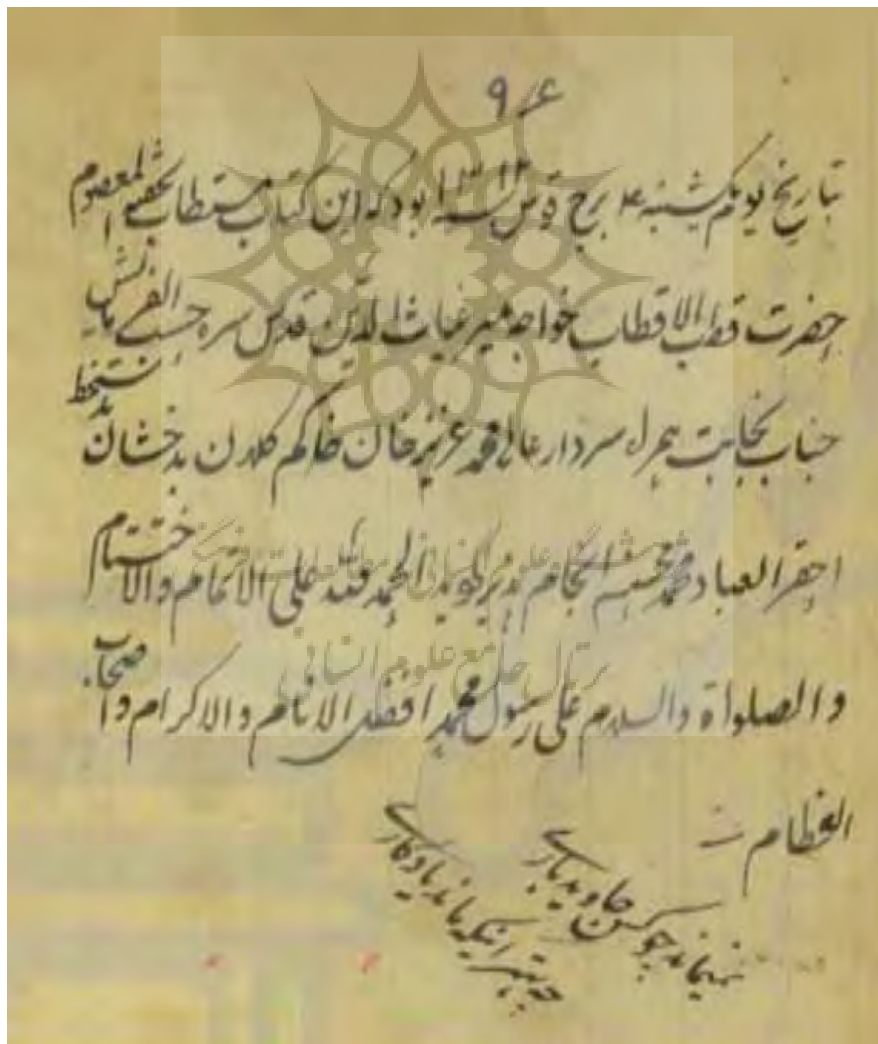 ۹۶
بتاریخ یوم یکشنبه ۴ برج قوس سنه ۱۳۱۳ بود که این کتاب مستطاب المعصوم
حضرت قطب الاقطاب خواجه میر غیاث الدین قدس سره حسب الفرمایش
جناب نجابت همراه سردار عالی محمد عزیز خان حاکم کلان بدخشان بدستخط
احقر العباد محمد انجام پذیر گوید الحمد لله علی الاتمام والاختتام
والصلواة والسلام علی رسول محمد افضل الانام والاکرام واصحاب
العظام
نمیماند چو کس جاوید باری
چه بهتر اینکه ماند یادگاری
پژوهشگاه علوم انسانی و مطالعات فرهنگی
پرتال جامع علوم انسانی